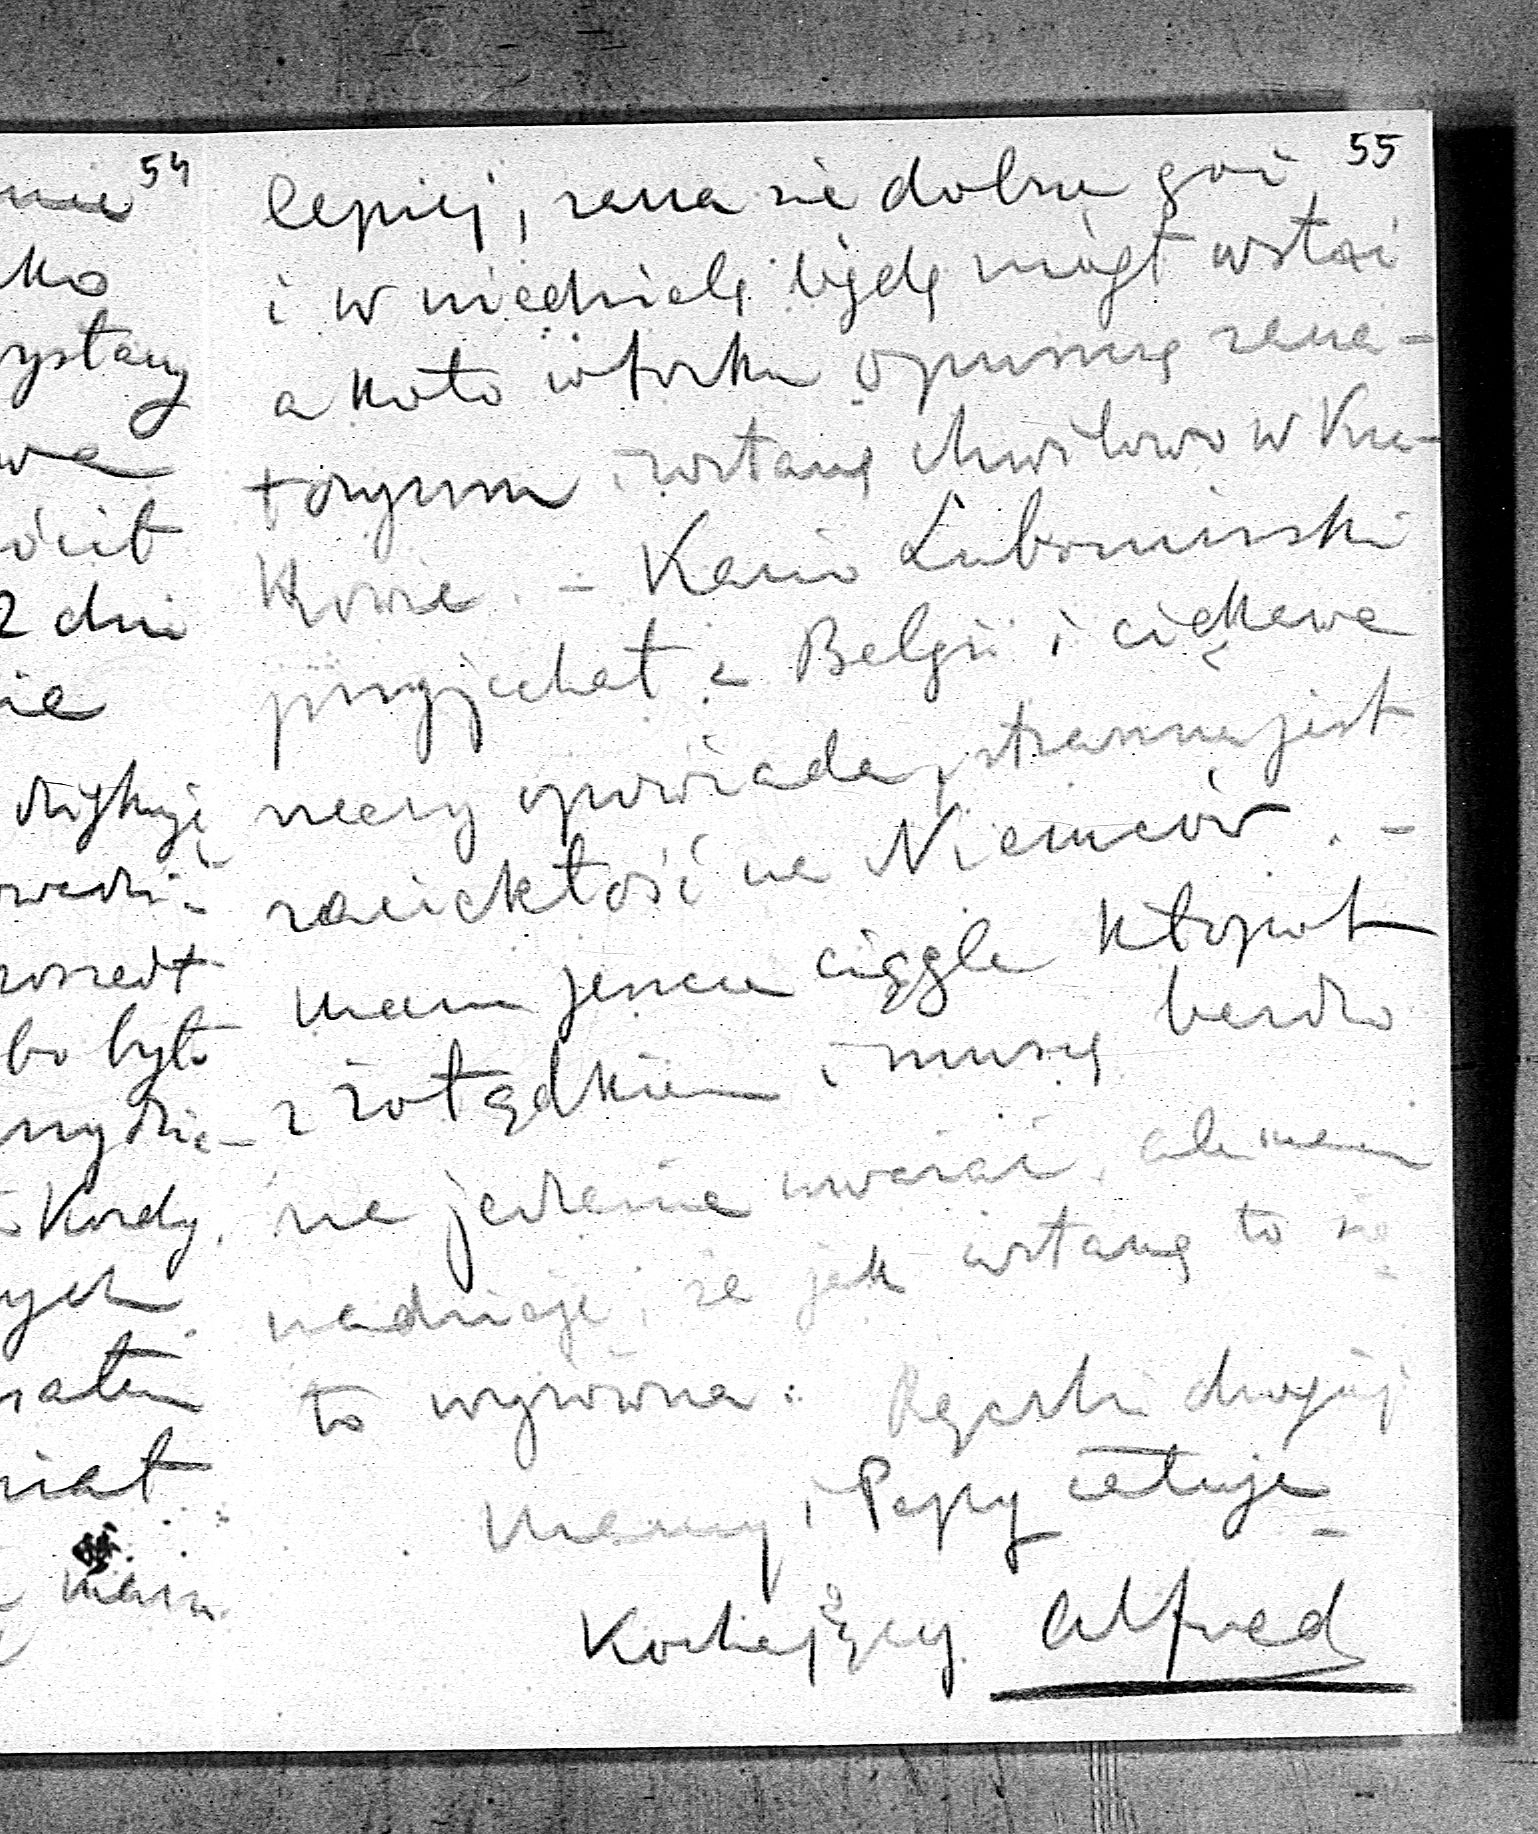 54
nie
ko
rystany
wa
ócił
2 dni
nie
dziękuję
owedzi-
poszedł
bo było
Kordy.
nych
niał
mam
55
lepiej, rana się dobrze goi
i w niedzielę będę mógł wstać
a koło wtorku opuszczę sana-
toryum i zostanę chwilowo w Kra-
kowie. - Kazio Lubomirski
przyjechał z Belgii i ciekawe
rzeczy opowiada, straszna jest
zaciekłość na Niemców. -
Mam jeszcze ciągle kłopot
z żołądkiem i muszę bardzo
na jedzenie uważać, ale mam
nadzieję, że jak wstanę to się
to wyrówna. Rączki drogiej
Mamy i Papy całuję -
Kochający Alfred